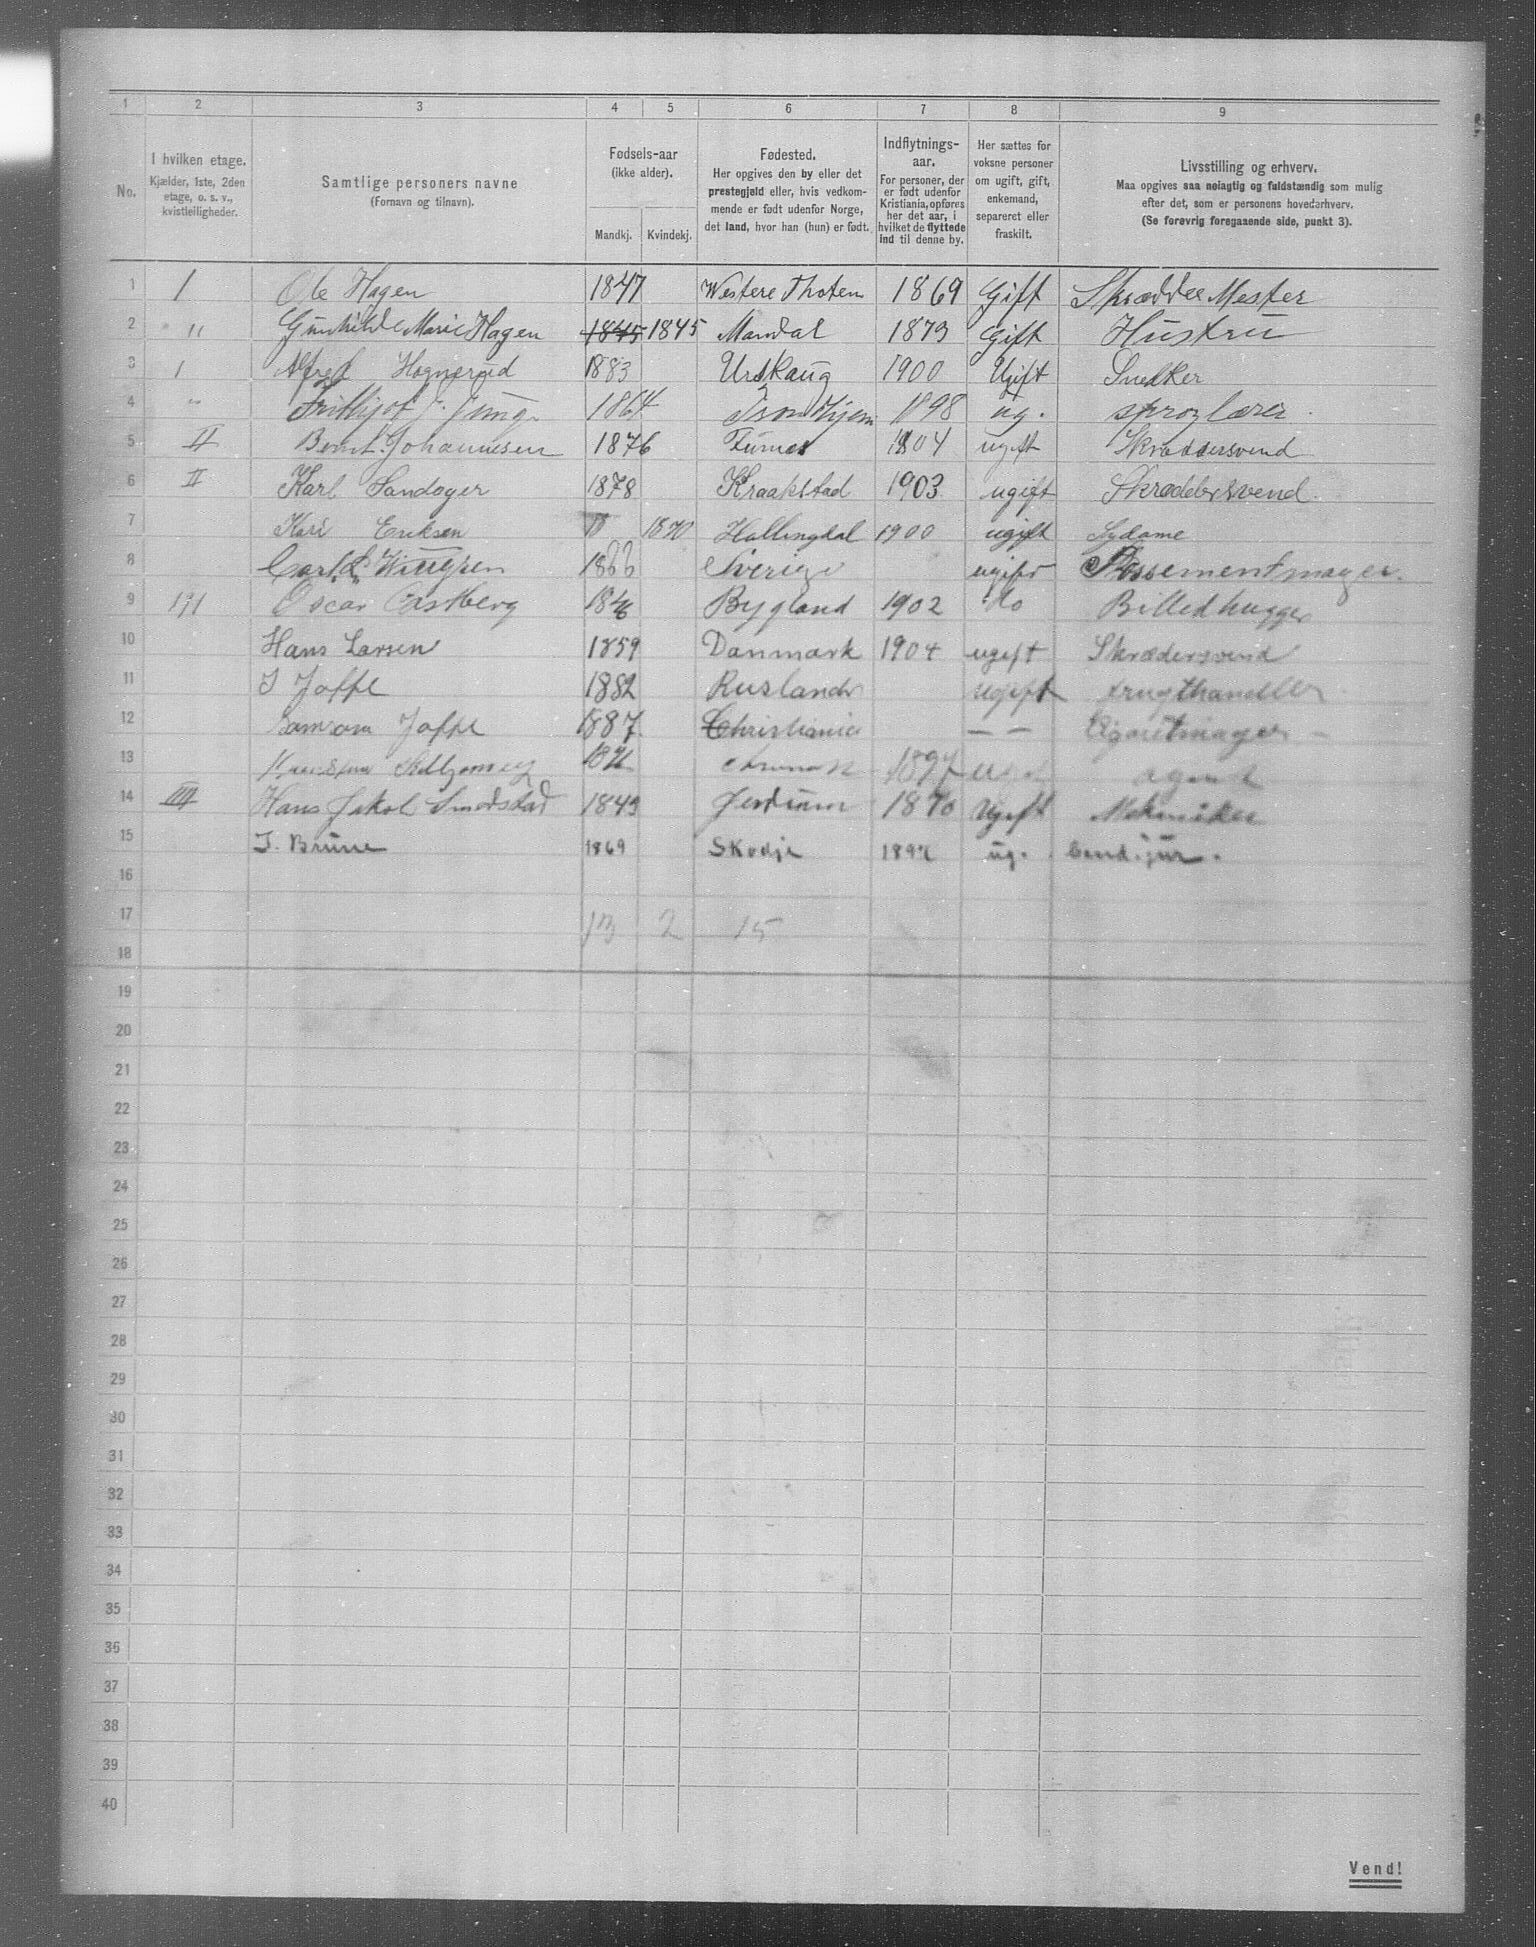 1 2 3 4 5 6 7 8 9
No.
I hvilken etage.
Kjælder, 1ste, 2den
etage, o. s. v.,
kvistleiligheder.
Samtlige personers navne
(Fornavn og tilnavn).
Fødsels-aar
(ikke alder).
Mandkj. Kvindekj.
Fødested.
Her opgives den by eller det
prestegjeld eller, hvis vedkom-
mende er født udenfor Norge,
det land, hvor han (hun) er født.
Indflytnings-
aar.
For personer, der
er født udenfor
Kristiania, opføres
her det aar, i
hvilket de flyttede
ind til denne by.
Her sættes for
voksne personer
om ugift, gift,
enkemand,
separeret eller
fraskilt.
Livsstilling og erhverv.
Maa opgives saa nøiagtig og fuldstændig som mulig
efter det, som er personens hovederhverv.
(Se forøvrig foregaaende side, punkt 3).
1 I Ole Hagen 1847 Westere Thoten 1869 Gift Skrædder Mester
2 " Gunhilde Marie Hagen 1845 1845 Mandal 1873 Gift Hustru
3 I Alfred Hognerud 1883 Urskaug 1900 Ugift Snedker
4 " Frithjof J. 1864 1898 ug. sproglærer.
5 II Bernt Johannesen 1876 Furnes 1904 ugift Skræddersvend
6 II Karl Sandager 1878 Kraakstad 1903 ugift Skræddersvend.
7 Kari Eriksen 18 1870 Hallingdal 1900 ugift Sydame
8 Carl 1866 Sverige ugift Possementmager.
9 III Oscar Castberg Bygland 1902 do Billedhugger
10 Hans Larsen 1859 Danmark 1904 ugift Skrædersvend
11 I Joffe 1882 Rusland ugift frugthandler
12 Samson Joffe 1887 Christiania — — Cigaretmager —
13 1897 agent
14 III Hans Jakob Smedstad 1843 Jerdrum 1870 Ugift Mekaniker
15 J. Brune 1869 Skodje 1892 ug. Cand. jur.
16
17 13 2 15
18
19
20
21
22
23
24
25
26
27
28
29
30
31
32
33
34
35
36
37
38
39
40
Vend!